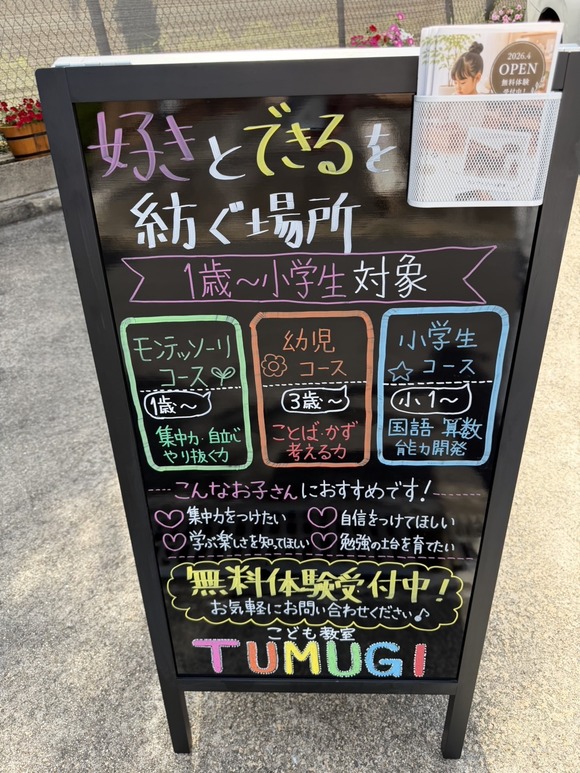 2026.4
OPEN
無料体験
受付中!
好きとできるを
紡ぐ場所
1歳〜小学生対象
モンテッソーリ
コース
1歳〜
集中力・自立心
やり抜く力
幼児
コース
3歳〜
ことば・かず
考える力
小学生
コース
小1〜
国語 算数
能力開発
こんなお子さんにおすすめです!
集中力をつけたい
自信をつけてほしい
学ぶ楽しさを知ってほしい
勉強の土台を育てたい
無料体験受付中!
お気軽にお問い合わせください♪
こども教室
TUMUGI